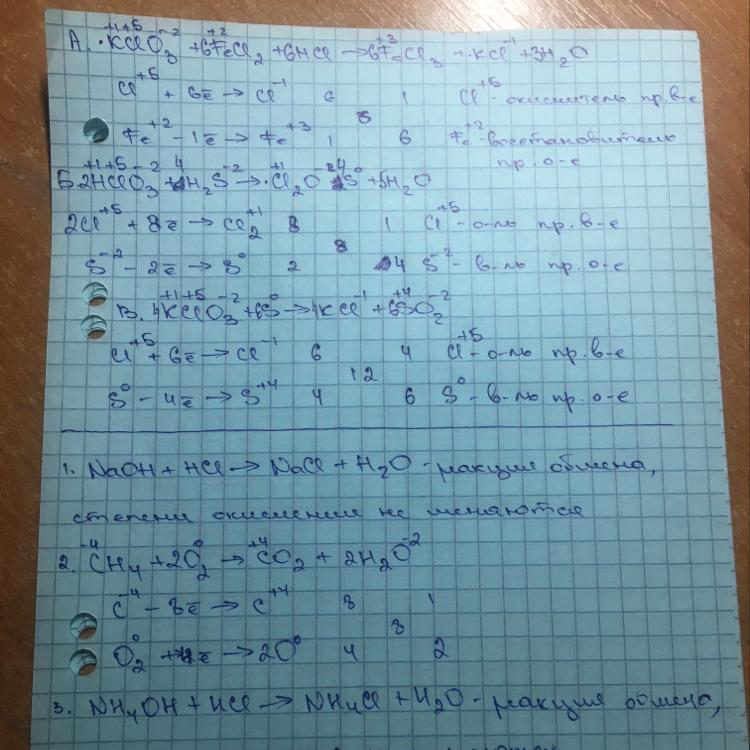 А. KClO₃ + 6FeCl₂ + 6HCl → 6FeCl₃ + KCl + 3H₂O
Cl⁺⁵ + 6ē → Cl⁻¹ 6 1 Cl⁺⁵ - окислитель пр. в-е
6
Fe⁺² - 1ē → Fe⁺³ 1 6 Fe⁺² - восстановитель
пр. о-е
Б. 2HClO₃ + 4H₂S⁻² → Cl₂O + 4S⁰ + 5H₂O
2Cl⁺⁵ + 8ē → Cl₂⁺¹ 8 1 Cl⁺⁵ - о-ль пр. в-е
8
S⁻² - 2ē → S⁰ 2 4 S⁻² - в-ль пр. о-е
В. 4KClO₃ + 6S⁰ → 4KCl⁻¹ + 6SO₂⁻²
Cl⁺⁵ + 6ē → Cl⁻¹ 6 4 Cl⁺⁵ - о-ль пр. в-е
12
S⁰ - 4ē → S⁺⁴ 4 6 S⁰ - в-ль пр. о-е
1. NaOH + HCl → NaCl + H₂O - реакция обмена,
степени окисления не меняются
2. C⁻⁴H₄ + 2O₂⁰ → C⁺⁴O₂ + 2H₂O⁻²
C⁻⁴ - 8ē → C⁺⁴ 8 1
8
O₂⁰ + 4ē → 2O⁰ 4 2
3. NH₄OH + HCl → NH₄Cl + H₂O - реакция обмена,